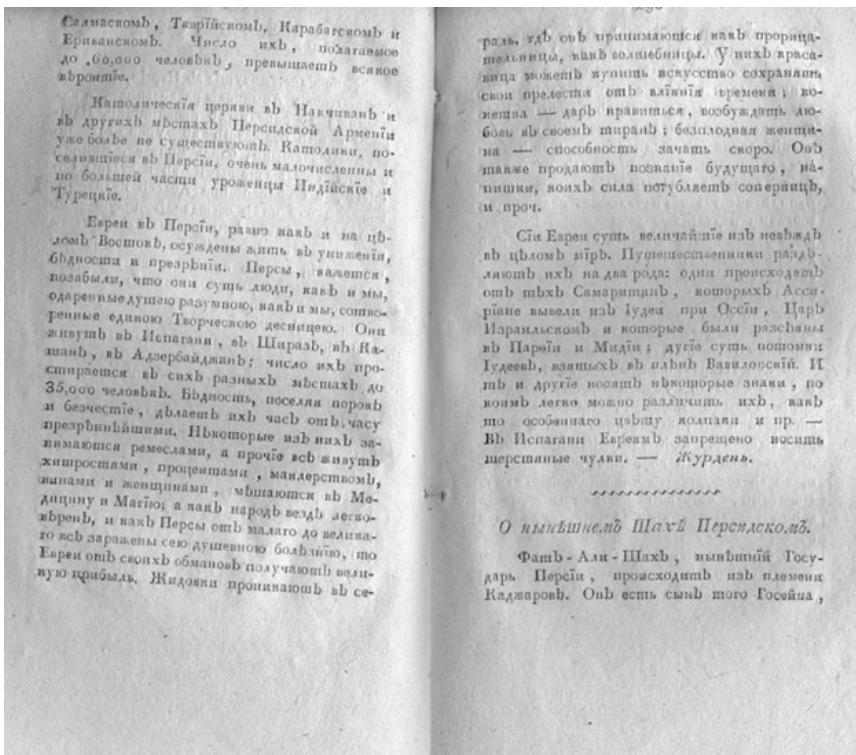 Салмаскомъ, Тварійскомъ, Карабагскомъ и
Ериванскомъ. Число ихъ, полагаемое
до 60,000 человѣкъ, превышаетъ всякое
вѣроятіе.
Католическія церкви въ Накчиванѣ и
въ другихъ мѣстахъ Персидской Арменіи
уже болѣе не существуютъ. Католики, по-
селившіеся въ Персіи, очень малочисленны и
по большей части уроженцы Индійскіе и
Турецкіе.
Евреи въ Персіи, равно какъ и на цѣ-
ломъ Востокѣ, осуждены жить въ униженіи,
бѣдности и презрѣніи. Персы, кажется,
позабыли, что они суть люди, какъ и мы,
одаренные душею разумною, какъ и мы, сотво-
ренные единою Творческою десницею. Они
живутъ въ Испагани, въ Ширазѣ, въ Ка-
шанѣ, въ Адзербайджанѣ; число ихъ про-
стирается въ сихъ разныхъ мѣстахъ до
35,000 человѣкъ. Бѣдность, поселяя порокъ
и безчестіе, дѣлаетъ ихъ часъ отъ часу
презрѣннѣйшими. Нѣкоторые изъ нихъ за-
нимаются ремеслами, а прочіе всѣ живутъ
хитростями, процентами, маклерствомъ,
винами и женщинами, мѣшаются въ Ме-
дицину и Магію; а какъ народъ вездѣ легко-
вѣренъ, и какъ Персы отъ малаго до велика-
го всѣ заражены сею душевною болѣзнію, то
Евреи отъ своихъ обмановъ получаютъ вели-
кую прибыль. Жидовки проникаютъ въ се-
раль, гдѣ онѣ принимаются какъ прорица-
тельницы, какъ волшебницы. У нихъ краса-
вица можетъ купить искусство сохранять
свои прелести отъ вліянія времени; ко-
кетка — даръ нравиться, возбуждать лю-
бовь въ своемъ тиранѣ; безплодная женщи-
на — способность зачать скоро. Онѣ
также продаютъ познаніе будущаго, на-
питки, коихъ сила погубляетъ соперницъ,
и проч.
Сіи Евреи суть величайшіе изъ невѣждъ
въ цѣломъ мірѣ. Путешественники раздѣ-
ляютъ ихъ на два рода: одни происходятъ
отъ тѣхъ Самаритянъ, которыхъ Асси-
ріане вывели изъ Іудеи при Оссіи, Царѣ
Израильскомъ и которые были разсѣяны
въ Парѳіи и Мидіи; дугіе суть потомки
Іудеевъ, взятыхъ въ плѣнъ Вавилонскій. И
тѣ и другіе носятъ нѣкоторые знаки, по
коимъ легко можно различить ихъ, какъ
то особеннаго цвѣту колпаки и пр. —
Въ Испагани Евреямъ запрещено носить
шерстяные чулки. — Журдень.
О нынѣшнемъ Шахѣ Персидскомъ.
Фатъ-Али-Шахъ, нынѣшній Госу-
дарь Персіи, происходитъ изъ племени
Каджаровъ. Онъ есть сынъ того Госейна,